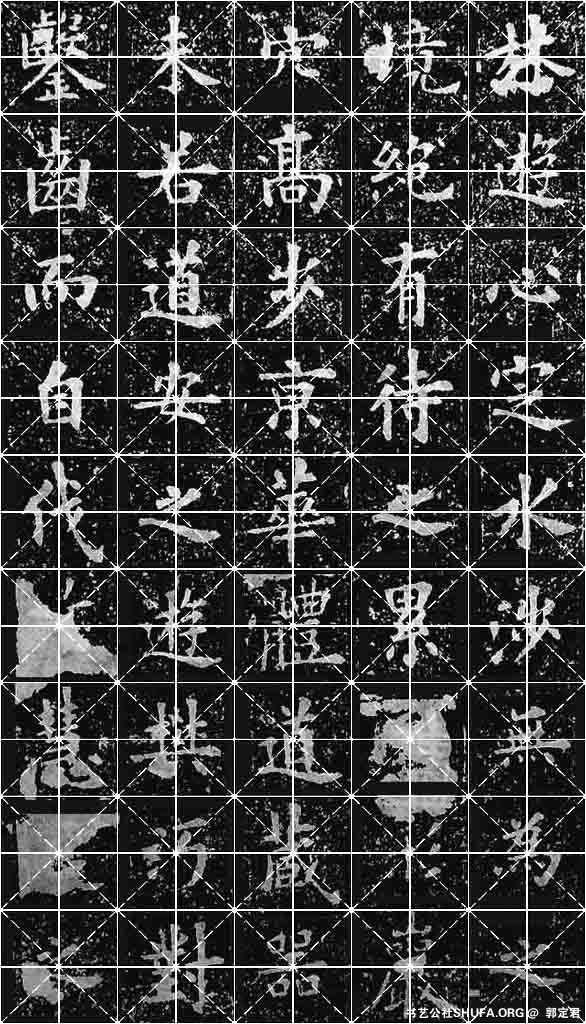 林遊心定水步無為之
境絶有待之累
穴高步京華體道藏器
未若道安之遊樊沔對
鑿齒而自伐
书艺公社SHUFA.ORG @ 郭定君